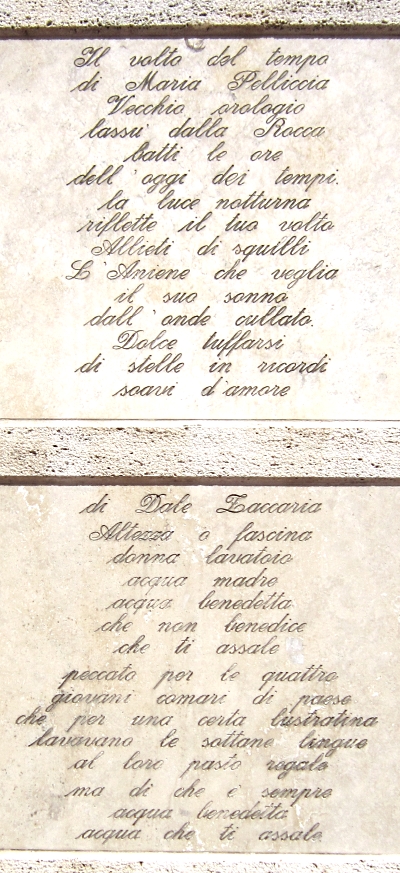 Il volto del tempo
di Maria Pelliccia
Vecchio orologio
lassu' dalla Rocca
batti le ore
dell'oggi dei tempi.
la luce notturna
riflette il tuo volto
Allieti di squilli
L'Aniene che veglia
il suo sonno
dall'onde cullato.
Dolce tuffarsi
di stelle in ricordi
soavi d'amore
di Dale Zaccaria
Altezza o fascina
donna lavatoio
acqua madre
acqua benedetta
che non benedice
che ti assale
peccato per le quattro
giovani comari di paese
che per una certa lustratina
lavavano le sottane lingue
al loro pasio regale
ma di che è sempre
acqua benedetta
acqua che ti assale